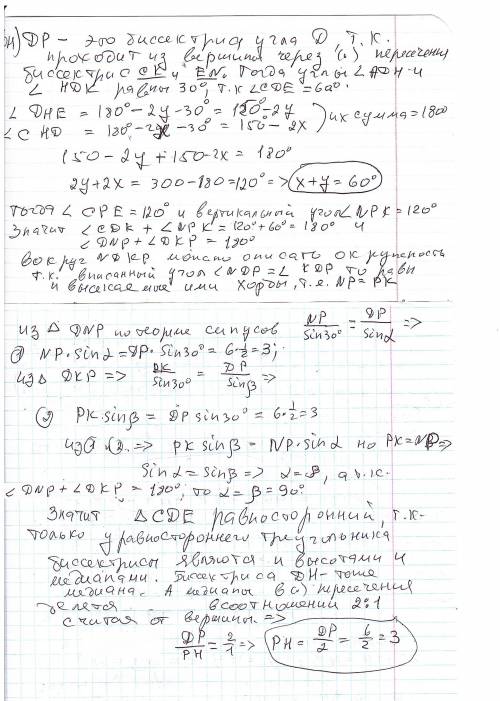 DP – это биссектриса угла D т.к.
проходит из вершины через (·) пересечения
биссектрис CK и EN. Тогда углы ∠ADH и
∠HDK равны 30°, т.к ∠CDE = 60°.
∠DHE = 180° - 2y - 30° = 150 - 2y
∠CHD = 180° - 2x - 30° = 150 - 2x ) их сумма = 180°
150 - 2y + 150 - 2x = 180°
2y + 2x = 300 - 180 = 120° => x + y = 60°
Тогда ∠CPE = 120° и вертикальный угол ∠NPK = 120°
Значит ∠CDK + ∠NPK = 120° + 60° = 180° и
∠DNP + ∠DKP = 180°
Вокруг NDKP можно описать окружность
т.к. вписанный угол ∠NDP = ∠KDP то равн
и высекаемые ими хорды, т.е. NP = PK
из △DNP по теореме синусов NP/sin30° = DP/sinα =>
① NP·sinα = DP·sin30° = 6·1/2 = 3;
из △DKP => PK/sin30° = DP/sinβ =>
② PK sinβ = DP sin30° = 6·1/2 = 3
из ①. ② => PK sinβ = NP·sinα но PK = NP =>
sinα = sinβ => α = β, а т.к.
∠DNP + ∠DKP = 180°, то α = β = 90°
Значит △CDE равносторонний, т.к.
только у равностороннего треугольника
биссектрисы являются и высотами и
медианами. Биссектриса DH – тоже
медиана. А медианы в (·) пересечения
делятся в соотношении 2:1
считая от вершины =>
DP/PH = 2/1 => PH = DP/2 = 6/2 = 3